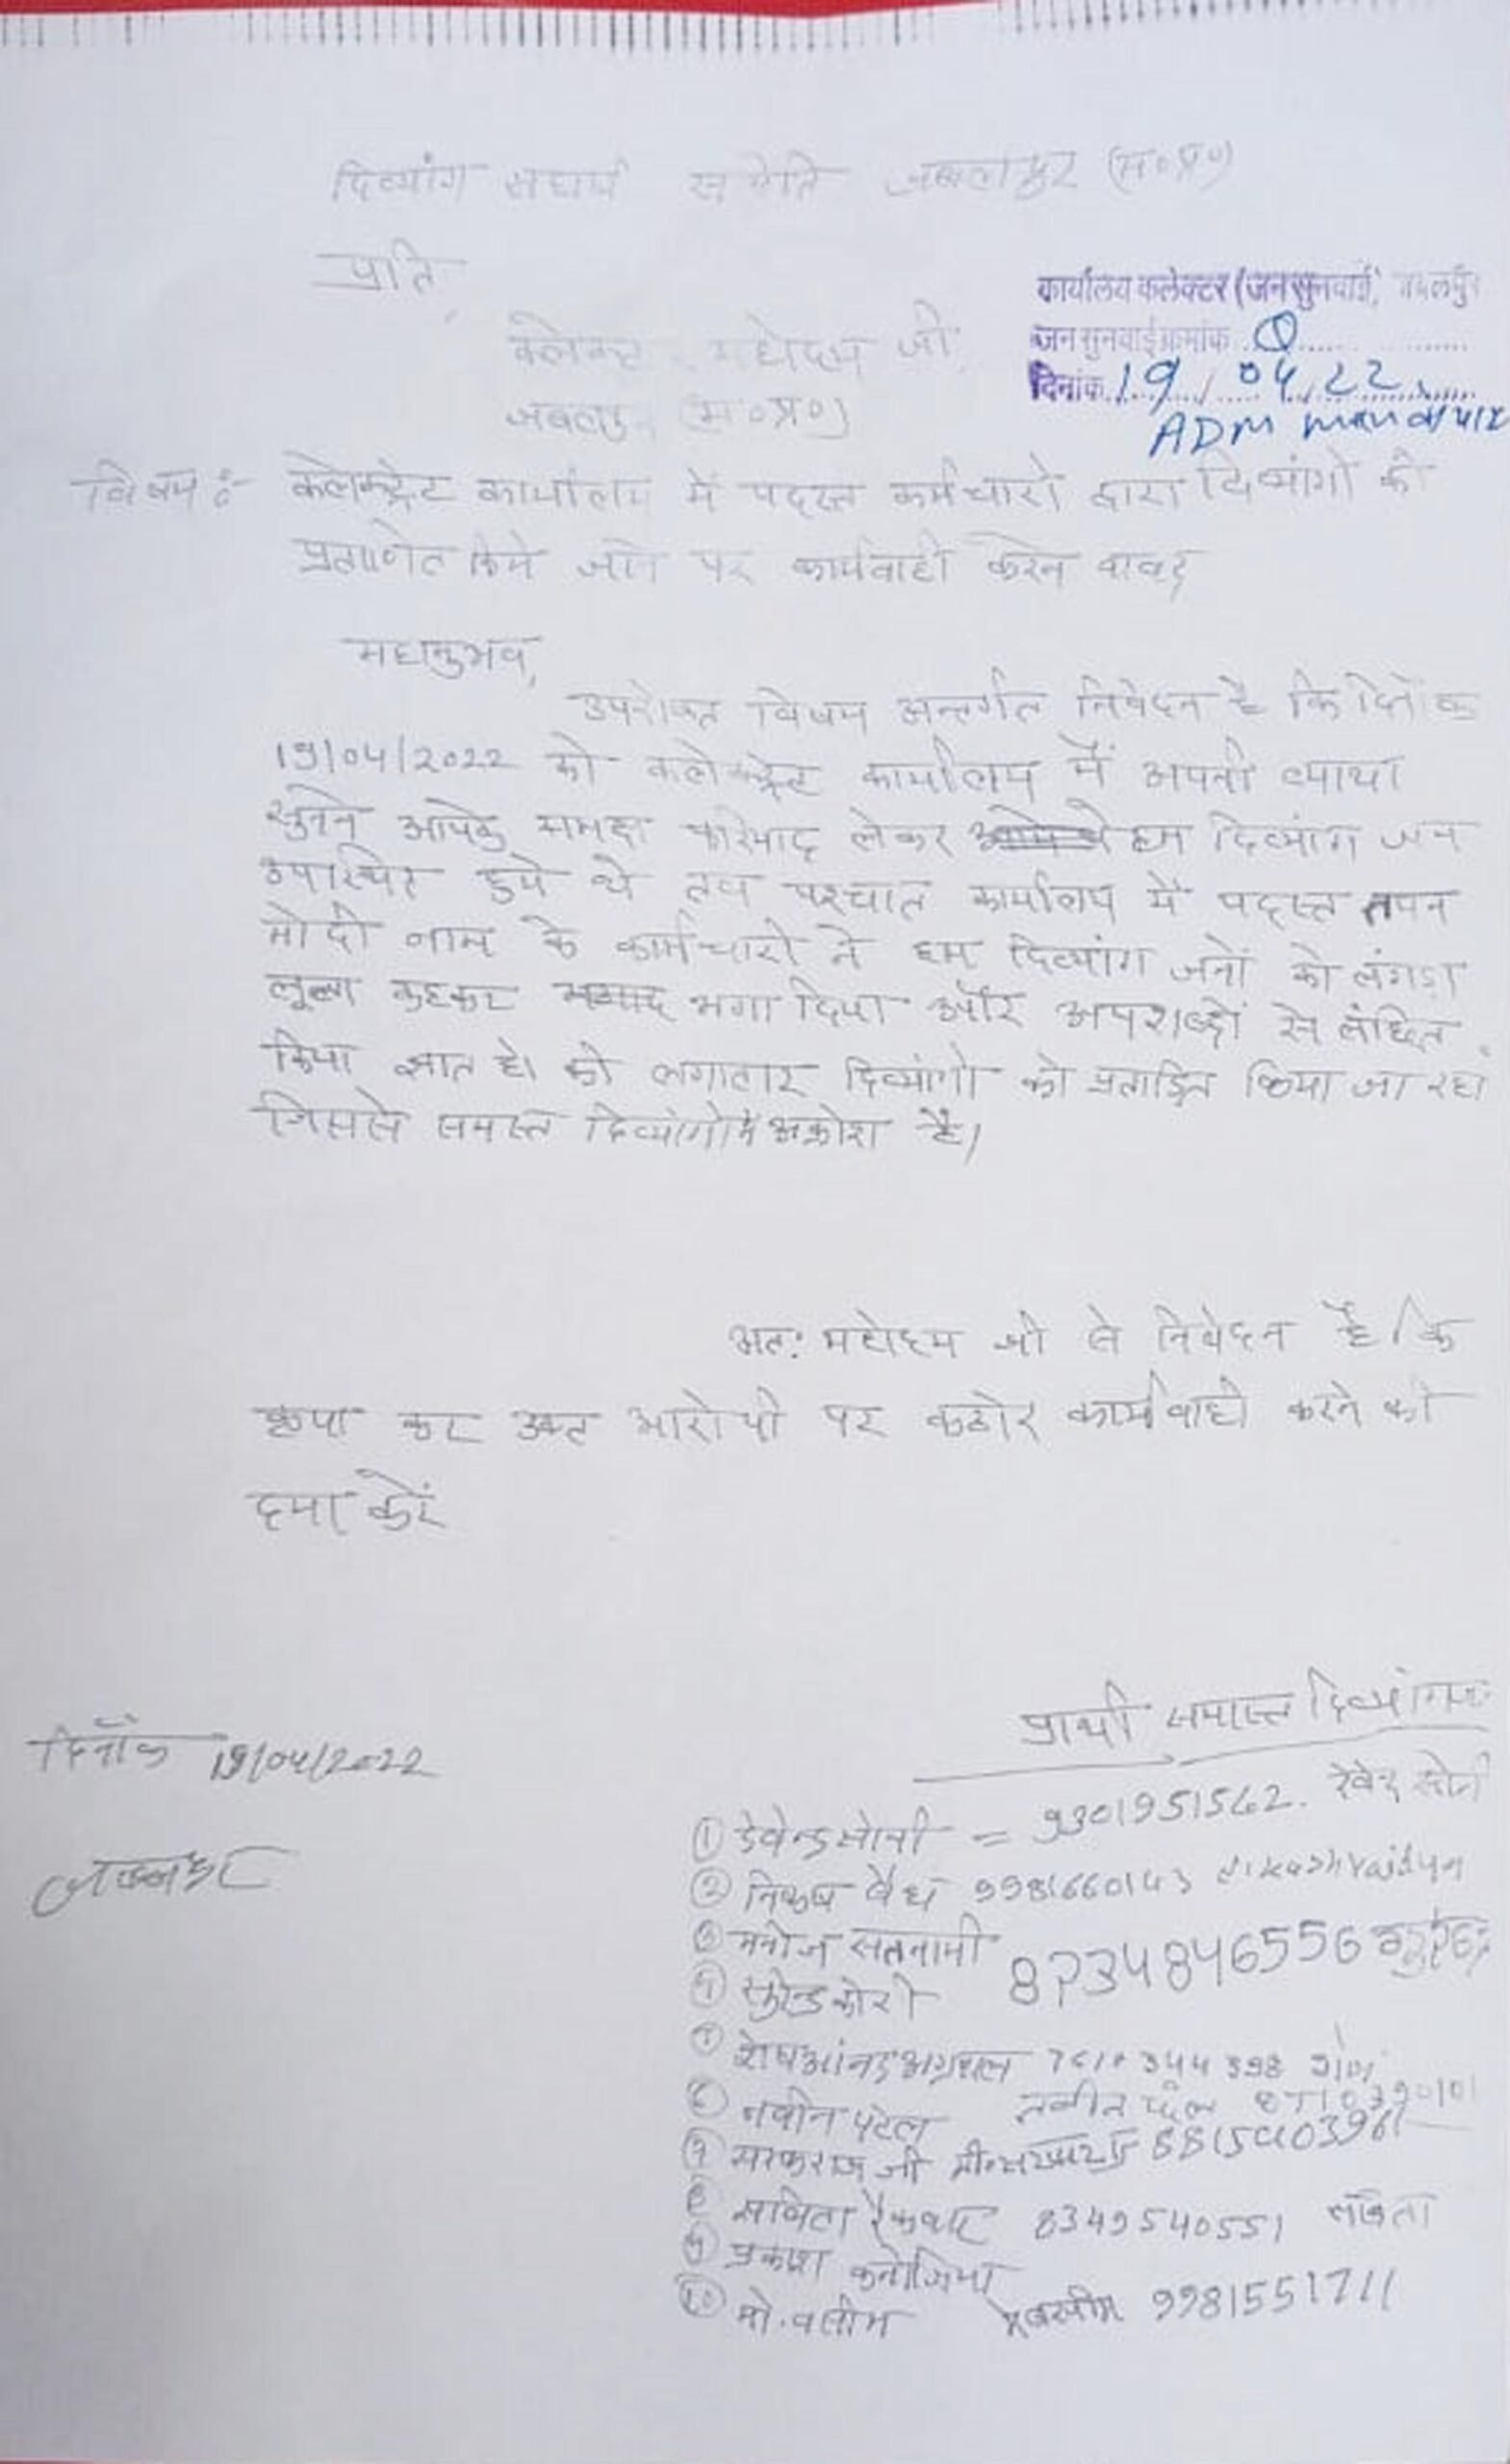 दिव्यांग संघर्ष समिति जबलपुर (म०प्र०)
प्रति,
कार्यालय कलेक्टर (जन सुनवाई) जबलपुर
जन सुनवाई क्रमांक
दिनांक 19/04/22
ADM
कलेक्टर महोदय जी
जबलपुर (म०प्र०)
विषय :- कलेक्ट्रेट कार्यालय में पदस्त कर्मचारी द्वारा दिव्यांगो को
किये जाने पर कार्यवाही करने बावद
महानुभव,
उपरोक्त विषय अन्तर्गत निवेदन है कि दिनाँक
19/04/2022 को कलेक्ट्रेट कार्यालय में अपनी व्याथा
सुनने आपके समक्ष फरियाद लेकर हम दिव्यांग जन
उपस्थित हुये थे तब पश्चात कार्यालय में पदस्त तपन
मोदी नाम के कार्मचारी ने हम दिव्यांग जनों को लंगड़ा
लूला कहकर भगा दिया और अपशब्दों से लंछित
किया ज्ञात हो की लगातार दिव्यांगो को प्रताड़ित किया जा रहा
जिससे समस्त दिव्यांगो में अक्रोश है।
अतः महोदय जी से निवेदन है कि
कृपा कर उक्त आरोपी पर कठोर कार्यवाही करने की
दया करें
प्रार्थी समस्त दिव्यांगजन
दिनाँक 19/04/2022
जबलपुर
① देवेन्द्र सोनी = 9301951562.
② निकाष वैध 9981660143
③ मनोज सतनामी
④ सुरेन्द्र कोरी 8734846556
अग्रवाल
⑥ नवीन पटेल
⑦ जी
⑧ सविता रैकवार 8349540551 सविता
⑨ प्रकाश कनोजिया
⑩ मो. वसीम 9981551711